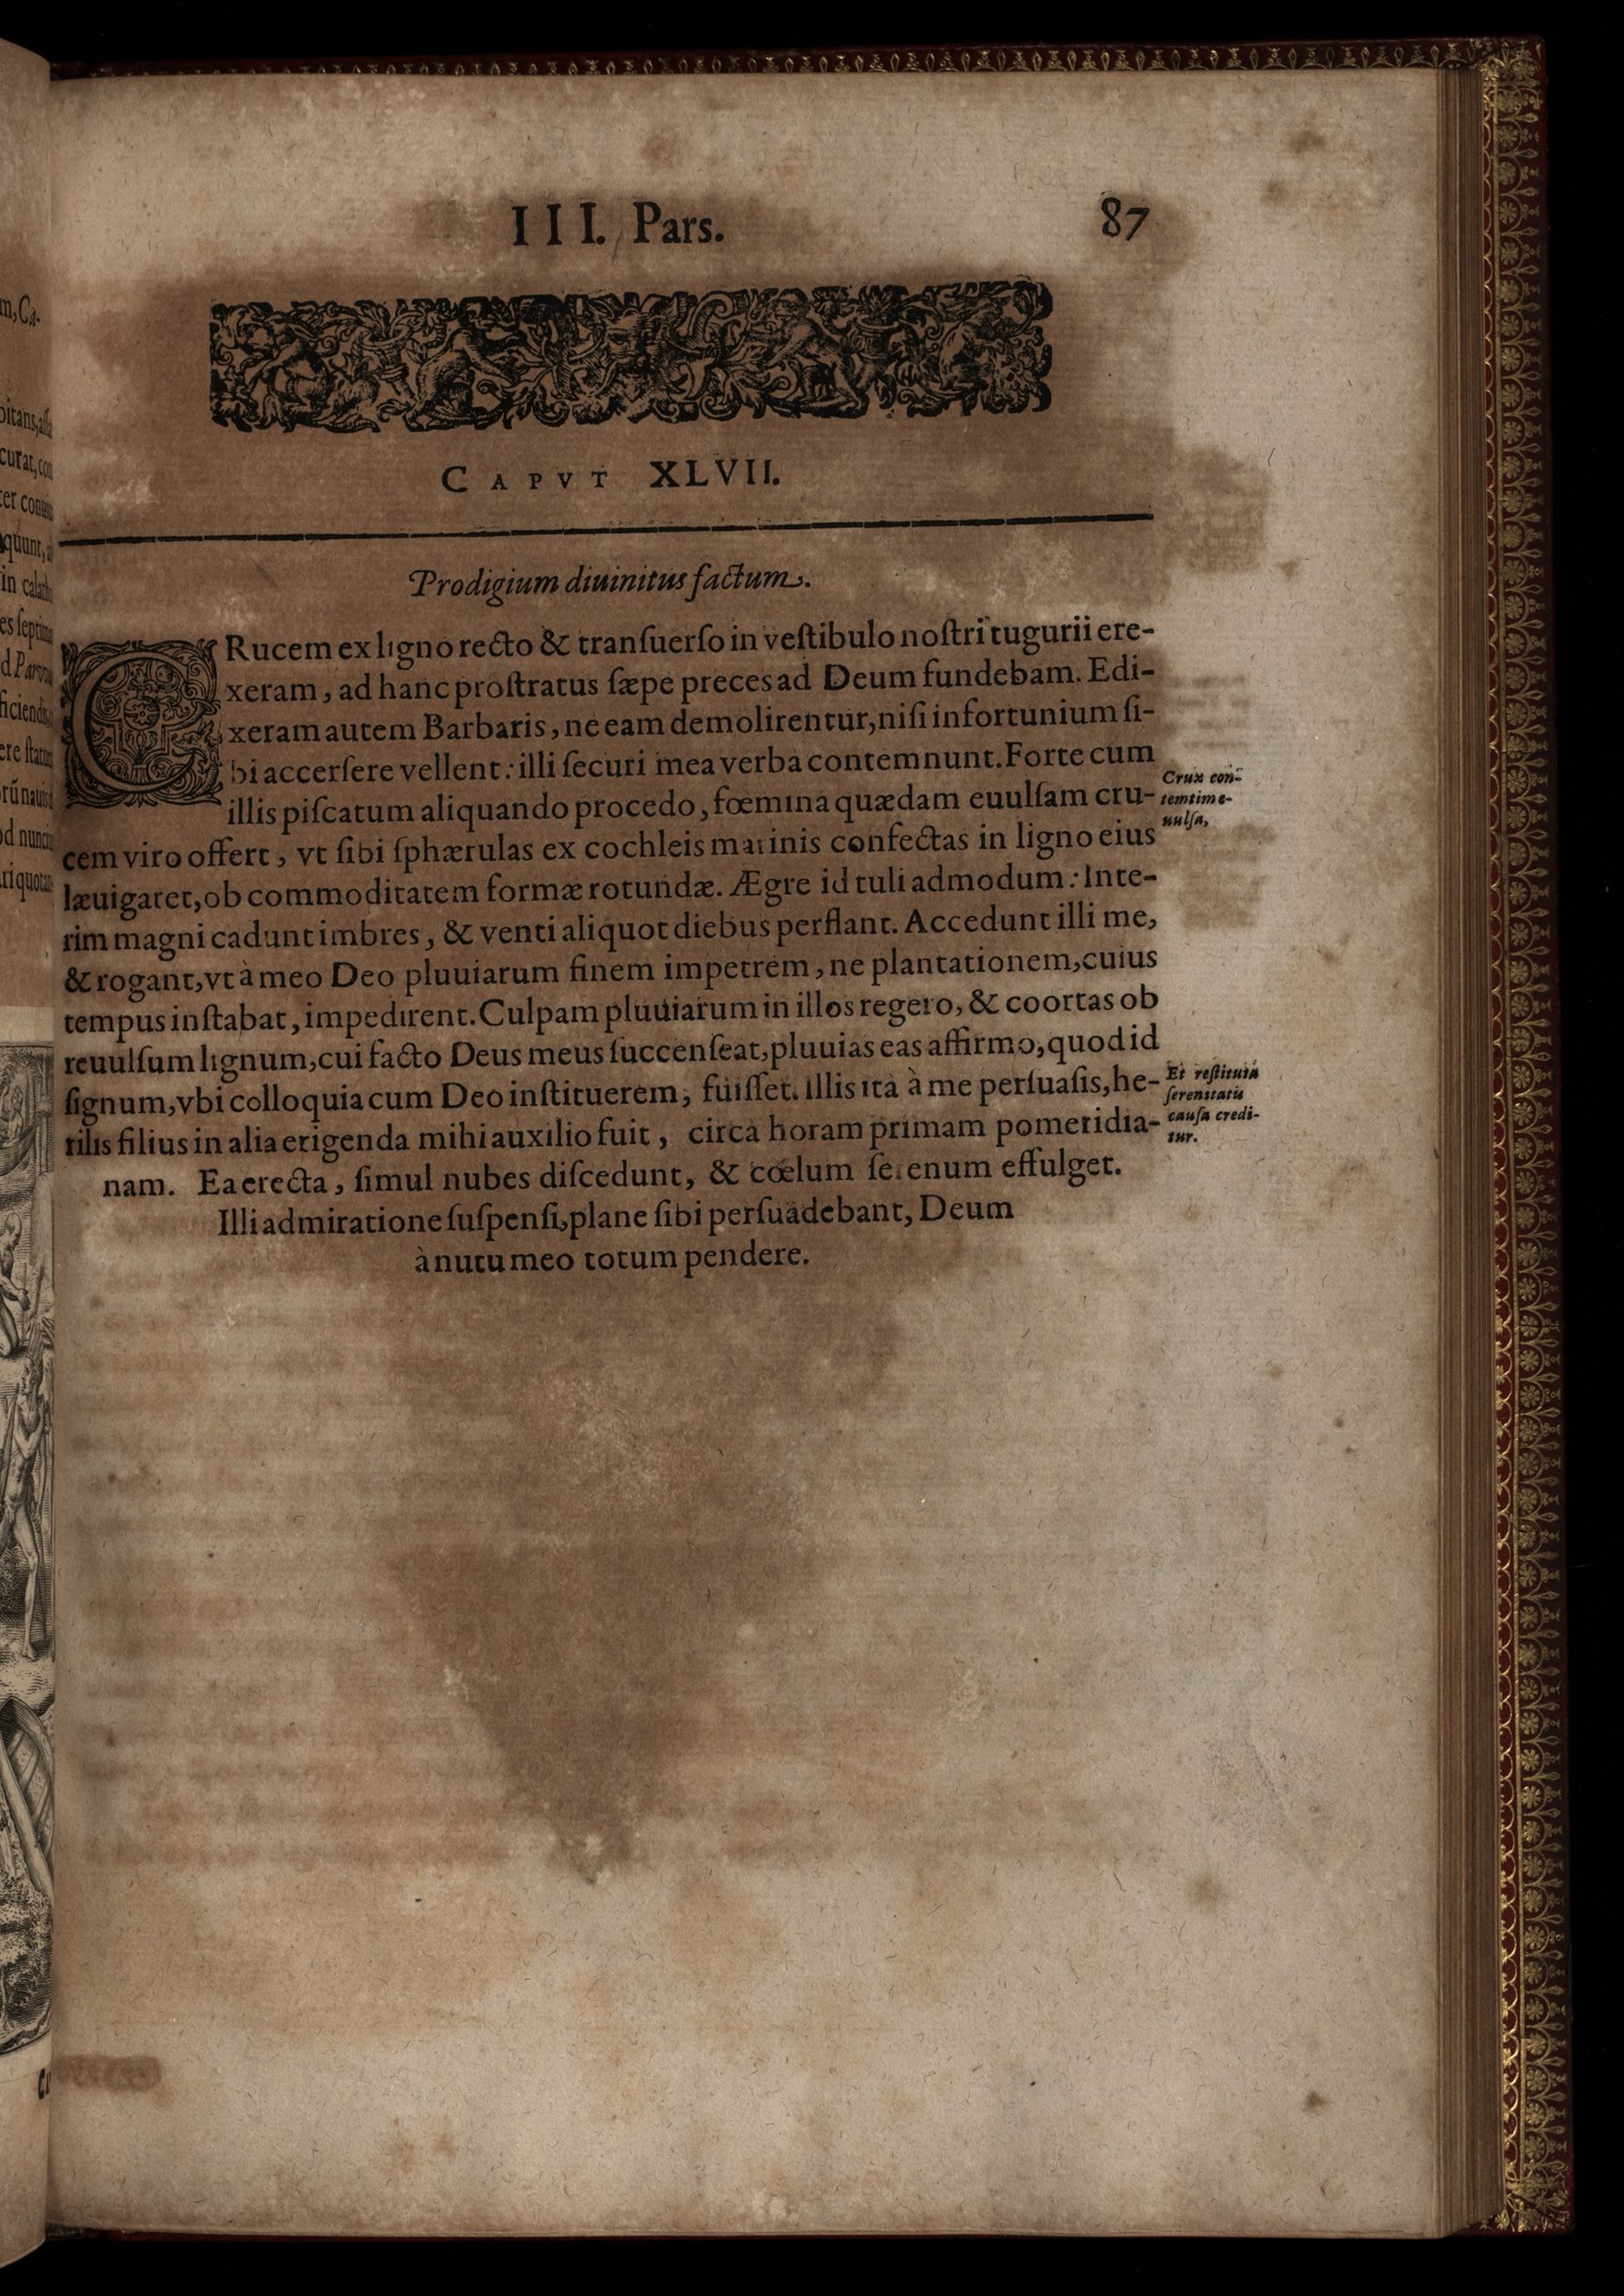 III. Pars. 87
CAPVT XLVII.
Prodigium diuinitus factum.
CRucem ex ligno recto & tranſuerſo in veſtibulo noſtri tugurii ere-
xeram, ad hanc proſtratus ſæpe preces ad Deum fundebam. Edi-
xeram autem Barbaris, ne eam demolirentur, niſi infortunium ſi-
bi accerſere vellent: illi ſecuri mea verba contemnunt. Forte cum
illis piſcatum aliquando procedo, fœmina quædam euulſam cru-
Crux con-
temtim e-
uulſa,
cem viro offert, vt ſibi ſphærulas ex cochleis marinis confectas in ligno eius
læuigaret, ob commoditatem formæ rotundæ. Ægre id tuli admodum: Inte-
rim magni cadunt imbres, & venti aliquot diebus perflant. Accedunt illi me,
& rogant, vt à meo Deo pluuiarum finem impetrem, ne plantationem, cuius
tempus inſtabat, impedirent. Culpam pluuiarum in illos regero, & coortas ob
reuulſum lignum, cui facto Deus meus ſuccenſeat, pluuias eas affirmo, quod id
ſignum, vbi colloquia cum Deo inſtituerem, fuiſſet. Illis ita à me perſuaſis, he-
Et reſtituta
ſerenitatis
cauſa credi-
tur.
rilis filius in alia erigenda mihi auxilio fuit, circa horam primam pomeridia-
nam. Ea erecta, ſimul nubes diſcedunt, & cœlum ſerenum effulget.
Illi admiratione ſuſpenſi, plane ſibi perſuadebant, Deum
à nutu meo totum pendere.